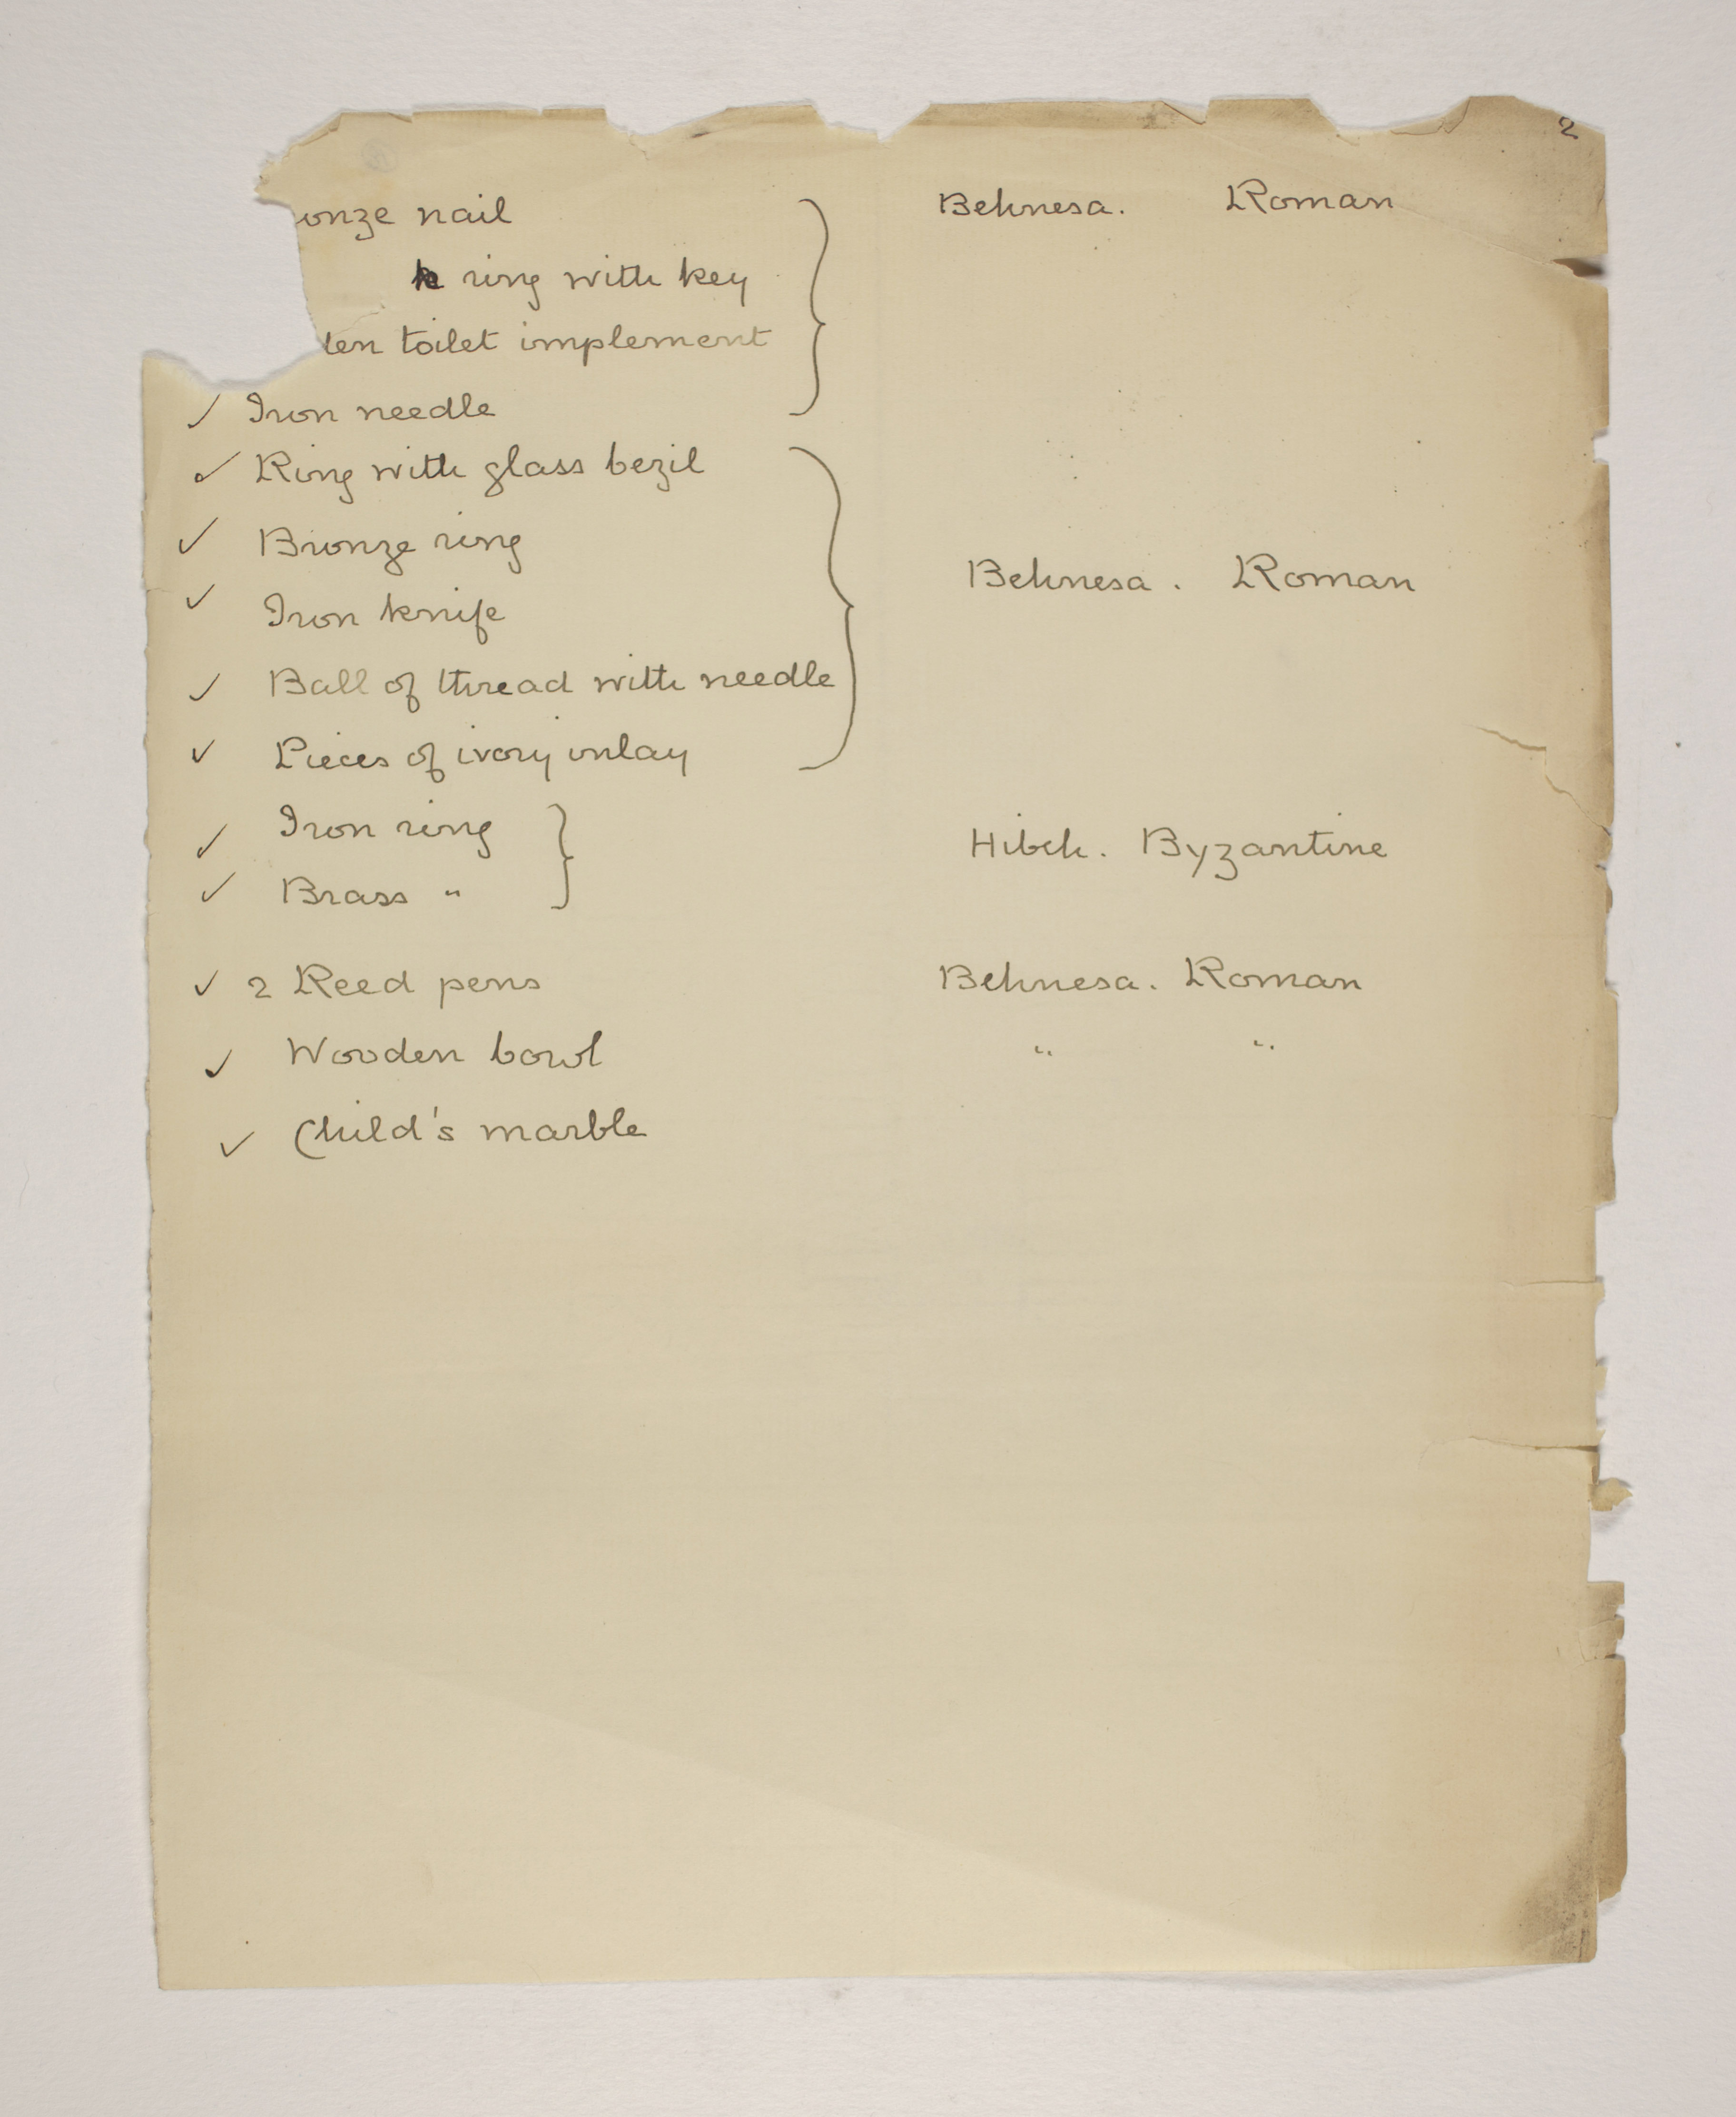 2
onze nail } Behnesa. Roman
ring with key
den toilet implement
✓ Iron needle
✓ Ring with glass bezil
✓ Bronze ring
✓ Iron knife } Behnesa. Roman
✓ Ball of thread with needle
✓ Pieces of ivory inlay
✓ Iron ring } Hibeh. Byzantine
✓ Brass "
✓ 2 Reed pens Behnesa. Roman
✓ Wooden bowl " "
✓ Child's marble